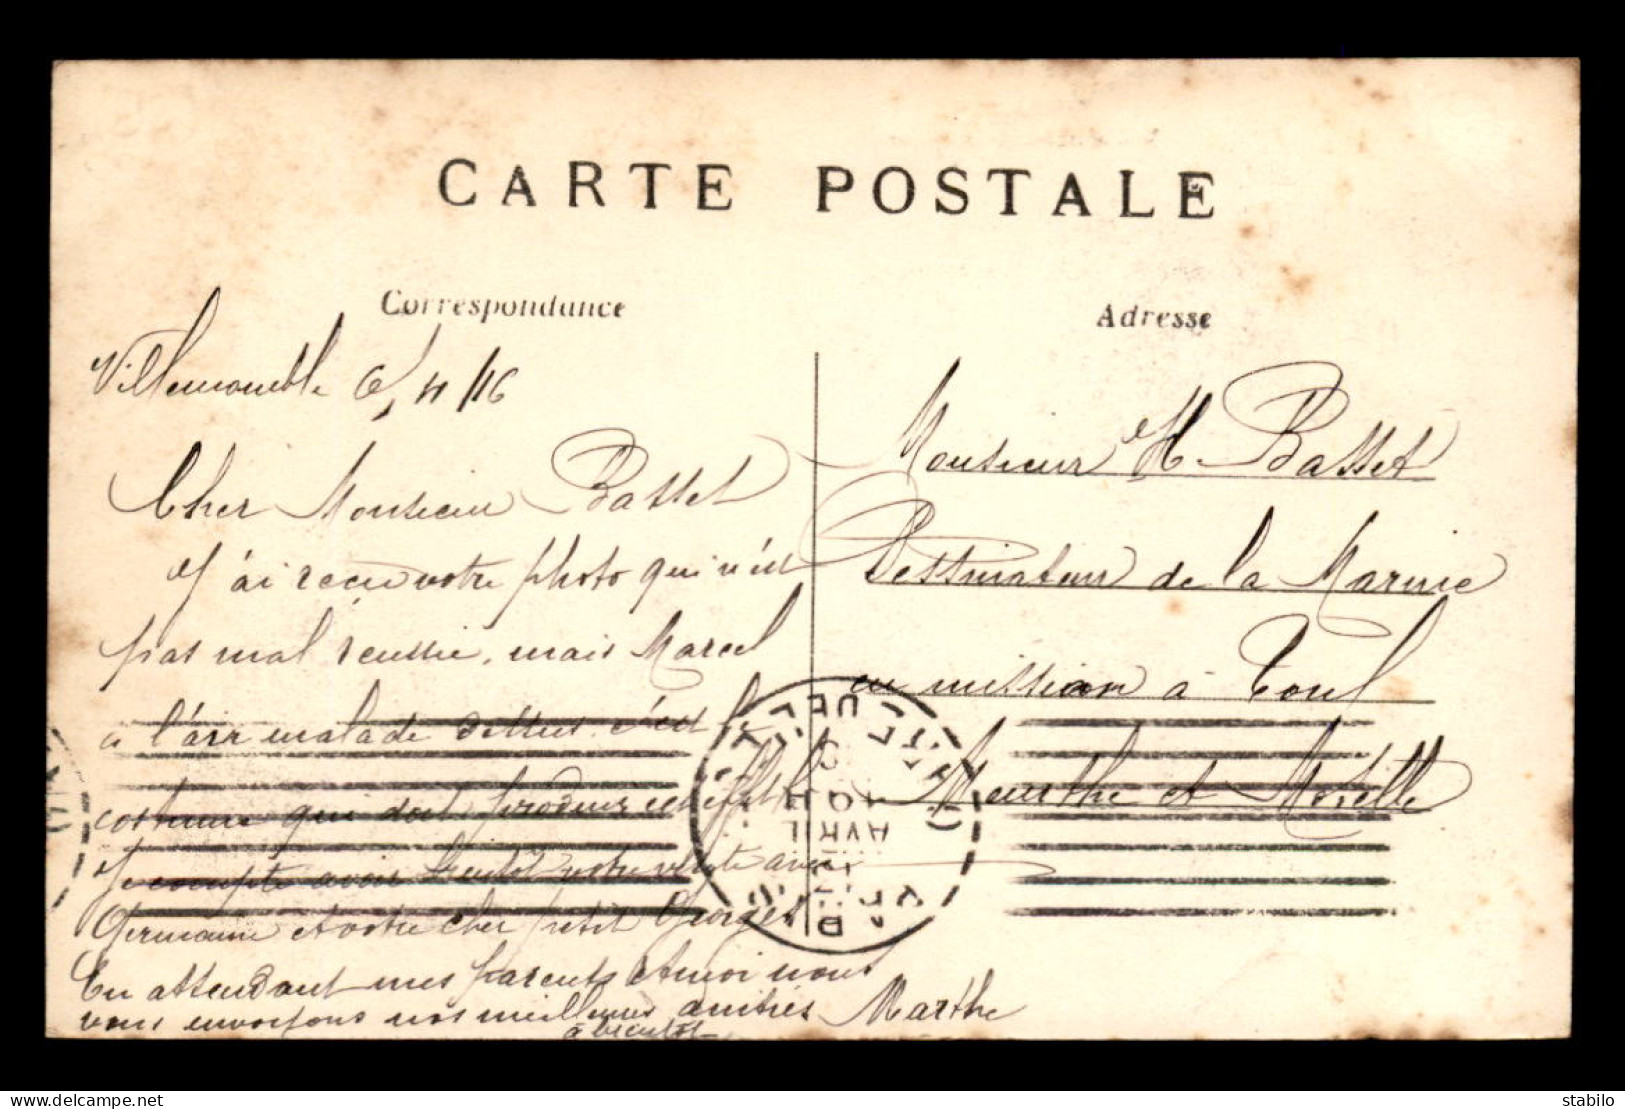 CARTE POSTALE
Correspondance
Villemomble 6/4/16
Cher Monsieur Basset
J'ai reçu votre photo qui n'est
pas mal réussie, mais Marcel
a l'air malade dessus c'est le
costume qui doit produire cet effet
Je compte avoir bientôt votre visite avec
Germaine et votre cher petit Georges
En attendant mes parents et moi nous
vous envoyons nos meilleures amitiés Marthe
à bientôt
Adresse
Monsieur H. Basset
Dessinateur de la Marine
en mission à Toul
Meurthe et Moselle
AVRIL
delcampe.net
stabilo